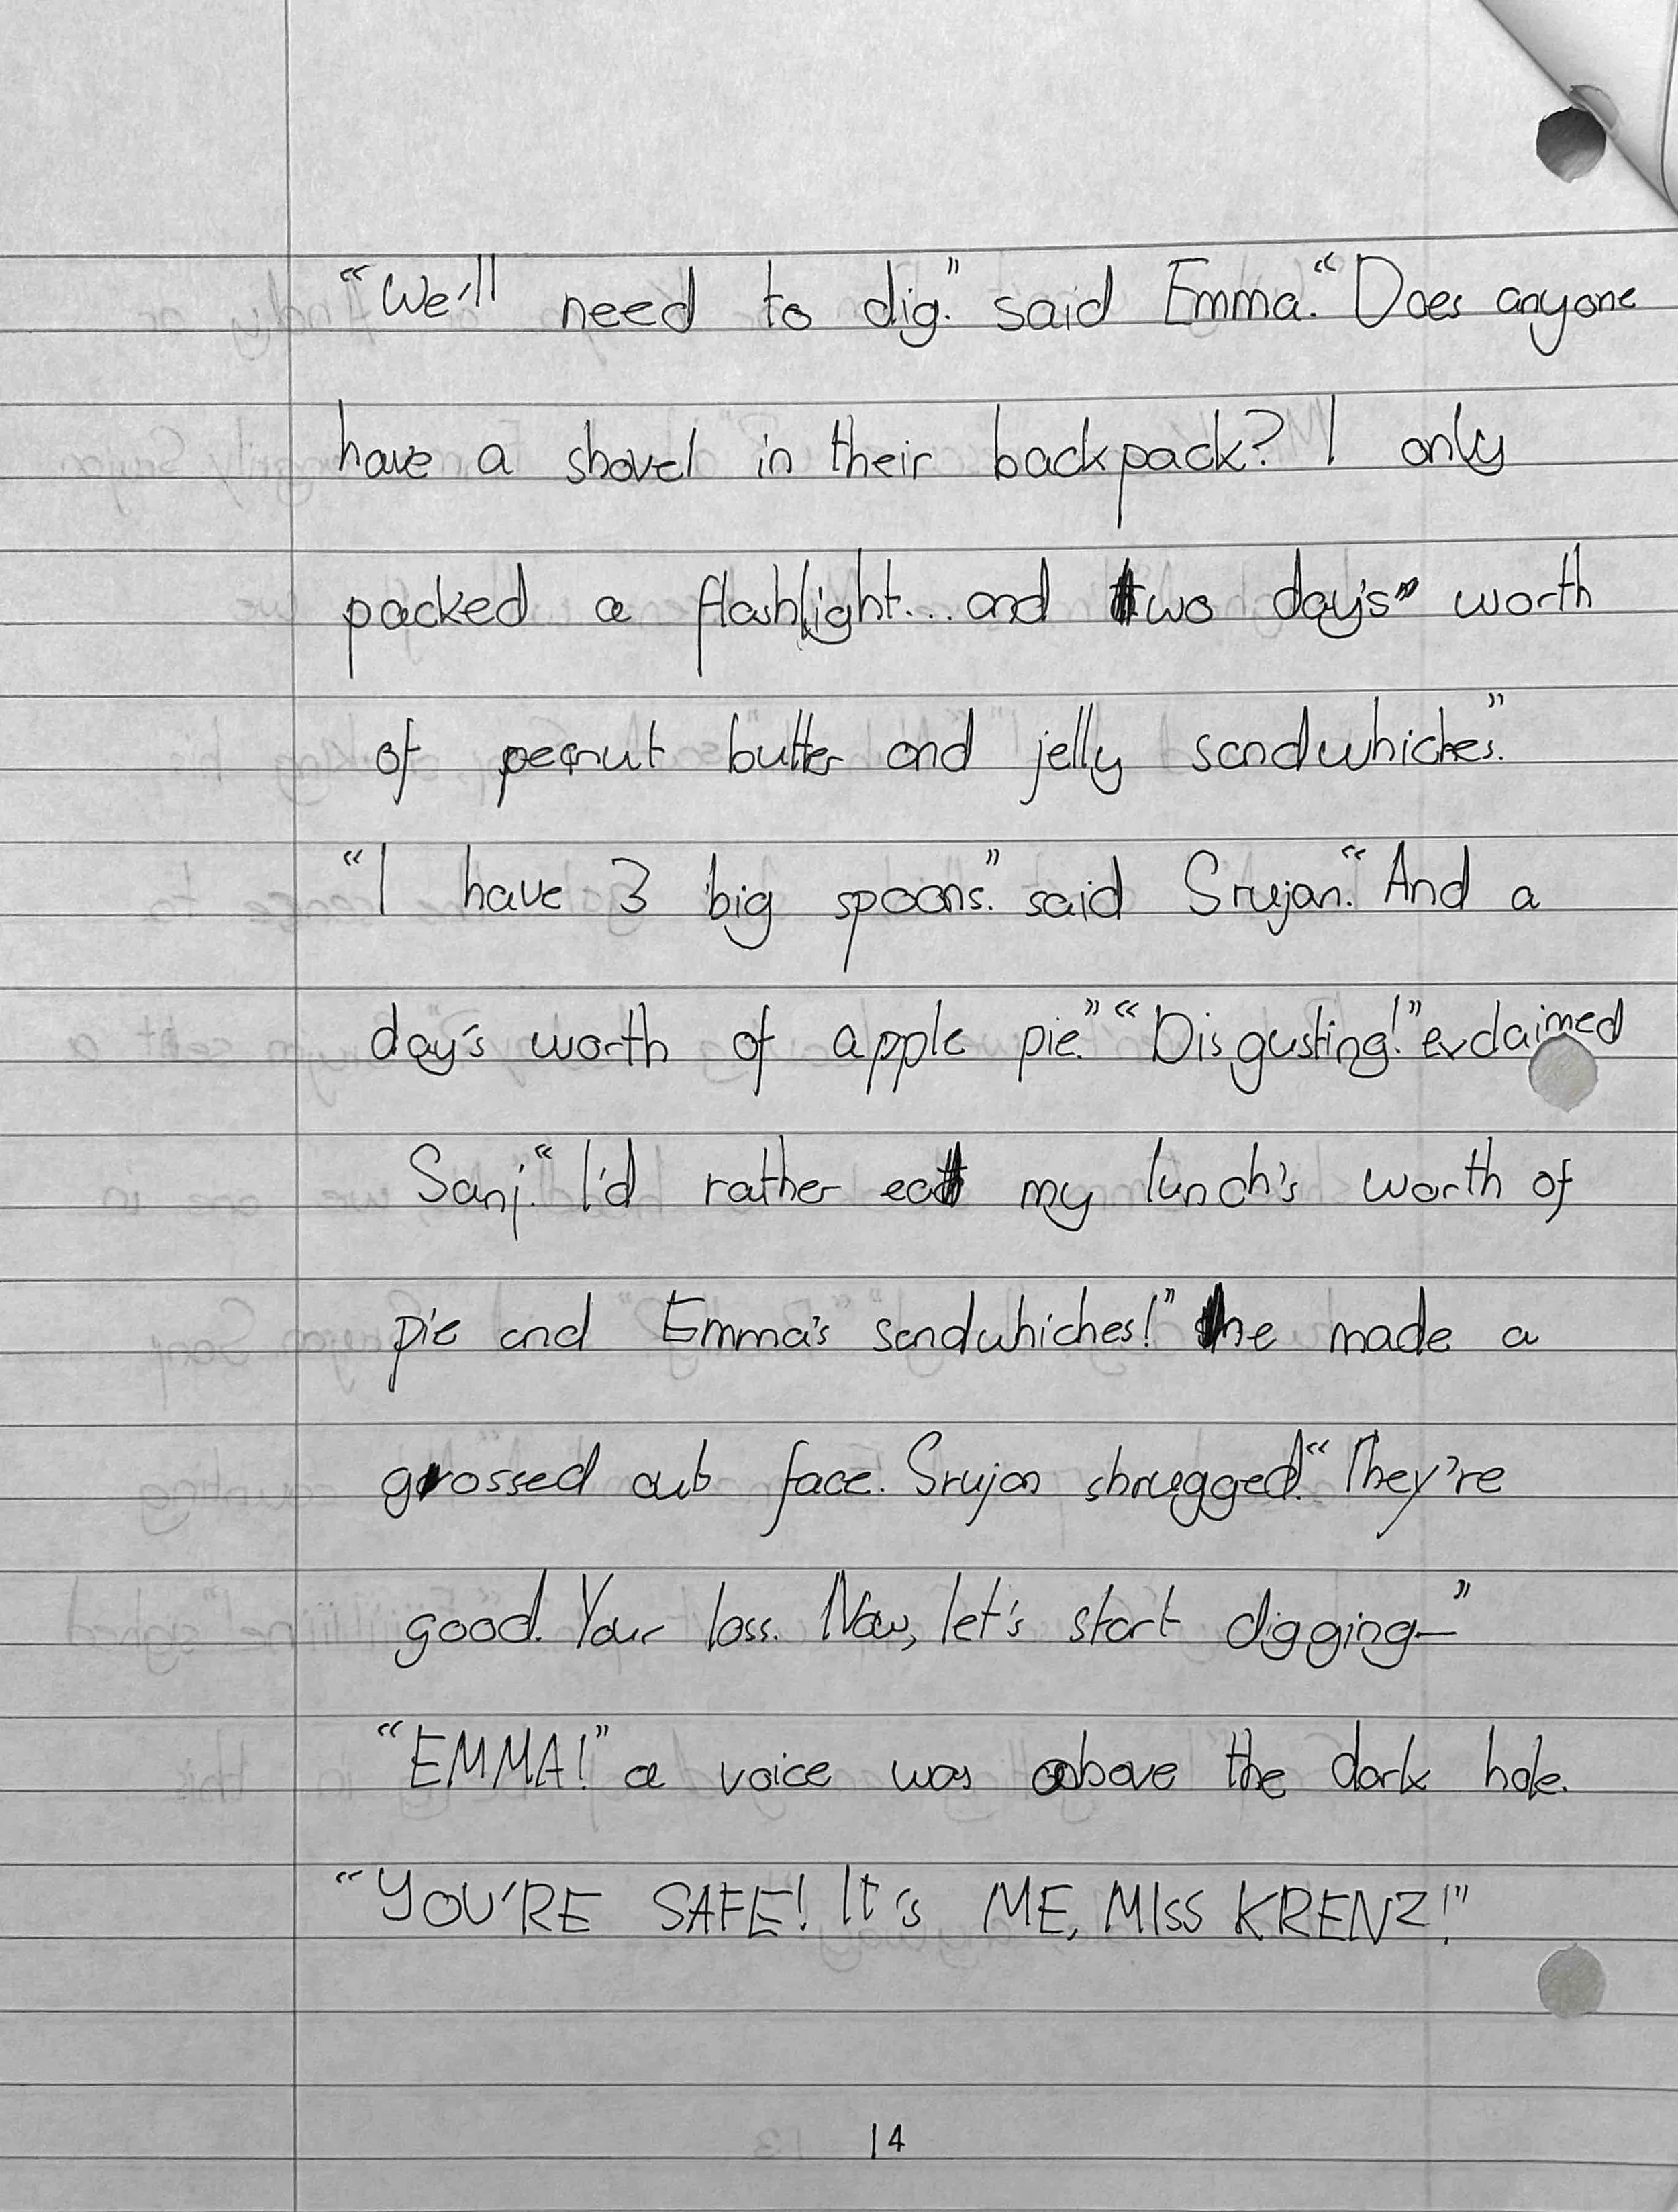 “We'll need to dig.” said Emma. “Does anyone
have a shovel in their backpack? I only
packed a flashlight... and two day's worth
of peanut butter and jelly sandwhiches.”
“I have 3 big spoons.” said Srujan. “And a
day's worth of apple pie.” “Disgusting!” exclaimed
Sanj. “I'd rather eat my lunch's worth of
pie and Emma's sandwhiches!” he made a
grossed out face. Srujan shrugged. “They're
good. Your loss. Now, let's start digging—”
“EMMA!” a voice was above the dark hole.
“YOU'RE SAFE! It's ME, MISS KRENZ!”
14